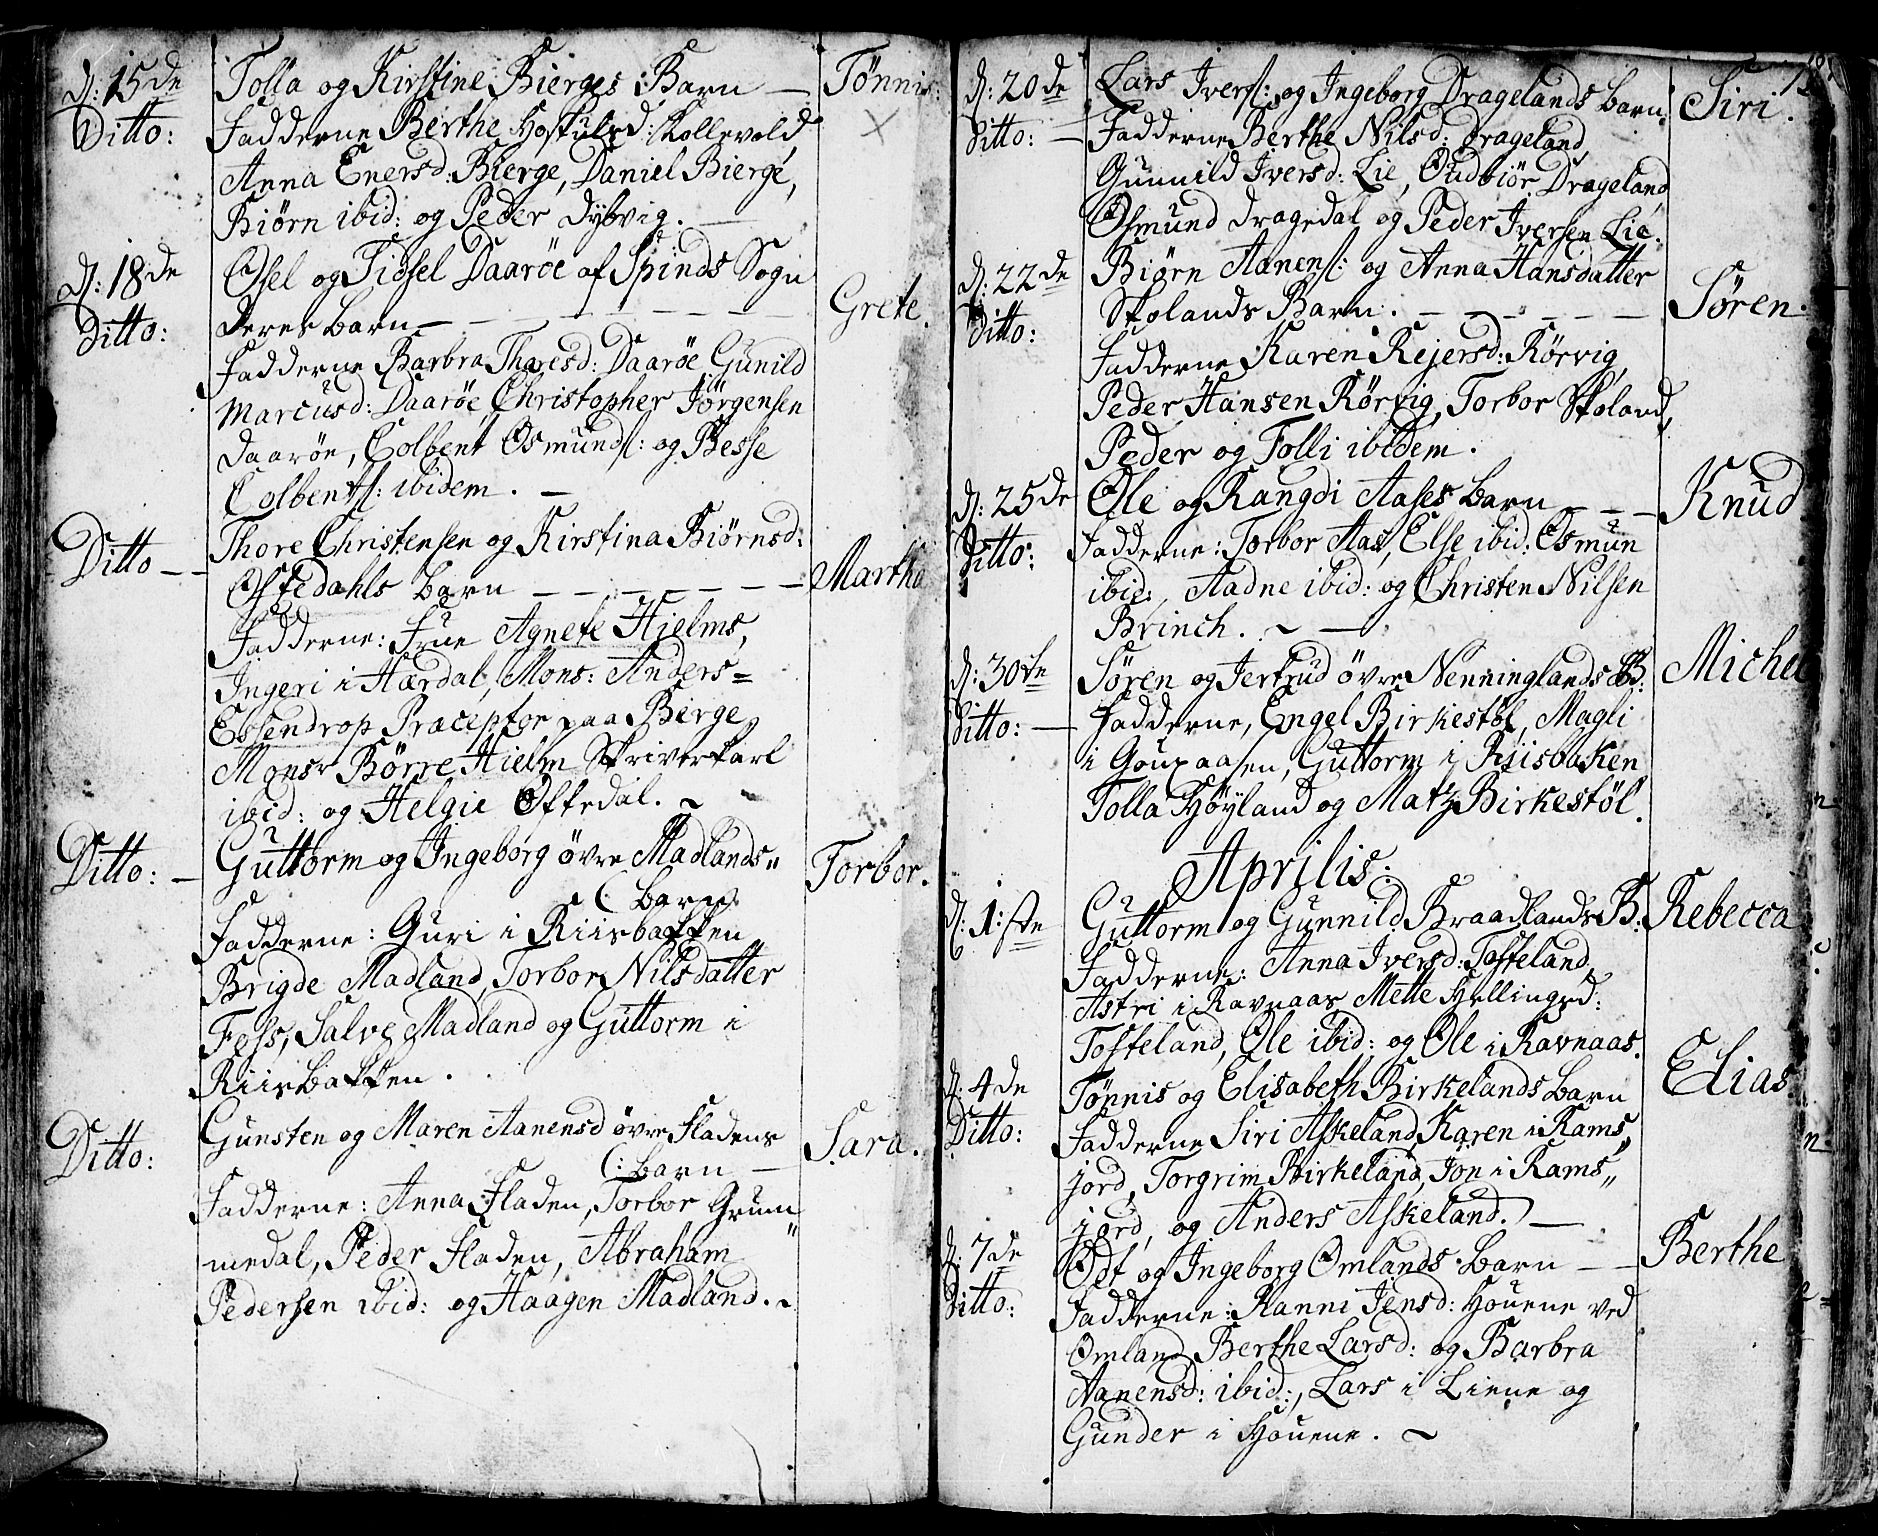 D: 15de Tolla og Kirstine Bierges Barn — Tönnis
Ditto: Fadderne Berthe Hoskulsd: Skollevold
Anna Enersd: Bierge, Daniel Bierge,
Biörn ibid: og Peder Dybvig.
D: 18de Osel og Sidsel Daaröe af Spinds Sogn
Ditto: deres barn — Grete.
Fadderne Barbra Tharesd: Daaröe, Gunild
Marcusd: Daaröe, Christopher Jörgensen
Daaröe, Colbent Osmunds: og Besse
Colbents: ibidem. —
Ditto — Thore Christensen og Kirstina Biörnsd:
Oftedahls barn — Martha
Fadderne: Frue Agnete Hielms,
Ingeri i Hærdal, Mons: Anders=
Essendrop Præceptor paa Berge,
Monsr Börre Hielm Skriverkarl
ibid: og Helgie Oftedal.
Ditto: — Guttorm og Ingeborg övre Madlands„ Torbor.
(: barn
Fadderne: Guri i Riisbakken
Brigde Madland, Torbor Nilsdatter
Fess, Salve Madland og Guttorm i
Riisbakken.
Ditto: Gunsten og Maren Aanensd övre Fladens Sara.
(: barn —
Fadderne: Anna Fladen, Torbor Grum„
medal, Peder Fladen, Abraham
Pedersen ibid: og Haagen Madland.
D: 20de Lars Ivers: og Ingeborg Dragelands barn. Siri.
Ditto: — Fadderne Berthe Nilsd: Drageland,
Gunnild Iversd: Lie, Gudbiör Drageland,
Osmund Dragedal og Peder Iversen Lie.
D: 22de Biörn Aanens: og Anna Hansdatter
Ditto: Skolands Barn. — Sören.
Fadderne Karen Rejersd: Rörvig,
Peder Hansen Rörvig, Torbor Skoland,
Peder og Tolli ibidem.
D: 25de Ole og Rangdi Aases barn — Knud
Ditto: Fadderne: Torbor Aas, Else ibid: Osmun
ibid:, Aadne ibid: og Christen Nilsen
Brinch. —
D: 30te Sören og Jertrud övre Nenninglands B: Michel
Ditto: — Fadderne, Engel Birkestöl, Magli
i Goupaasen, Guttorm i Riisbaken
Tolla Höyland og Matz Birkestöl.
Aprilis:
D: 1:ste Guttorm og Gunnild Braadlands B: Rebecca
Fadderne: Anna Iversd: Tosteland,
Astri i Ravnaas Mette Hellingsd:
Tosteland, Ole ibid: og Ole i Ravnaas.
D: 4de Tönnis og Elisabeth Birkelands barn Elias
Ditto: Fadderne Siri Askeland, Karen i Rams„
jord, Torgrim Birkeland, Jon i Rams„
jord, og Anders Askeland. —
D: 7de Odt og Ingeborg Omlands barn — Berthe
Ditto: Fadderne: Ranni Jensd: Houene ved
Omland, Berthe Larsd: og Barbra
Aanensd: ibid:, Lars i Liene og
Gunder i Houene.